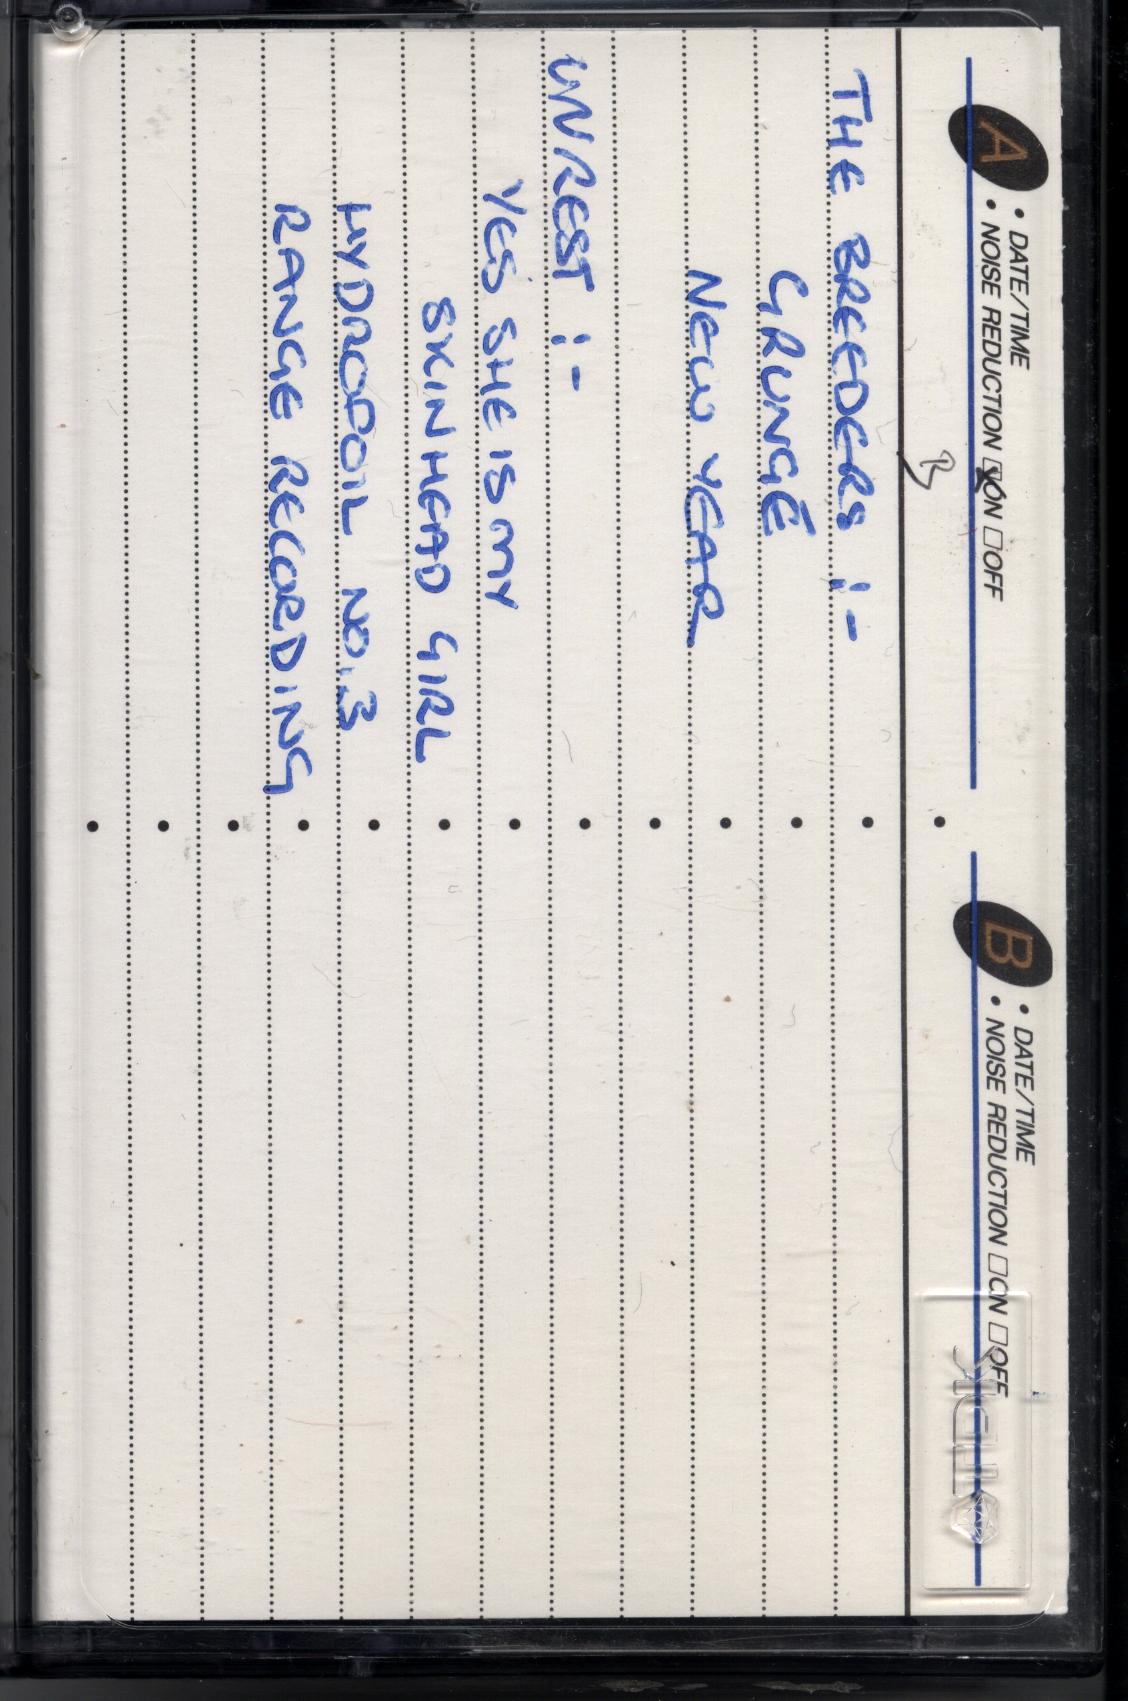 A
• DATE/TIME
• NOISE REDUCTION □ON □OFF
B
• DATE/TIME
• NOISE REDUCTION □ON □OFF
TDK
THE BREEDERS :-
GRUNGE
NEW YEAR
UNREST :-
YES SHE IS MY
SKINHEAD GIRL
HYDROFOIL NO.3
RANGE RECORDING